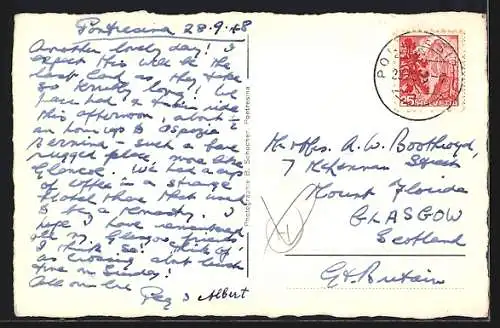 Pontresina 28.9.48
Another lovely day! I
expect this will be the
last card as they take
so long! We
have had a train ride
this afternoon, about
an hour up to Ospizio
Bernina - such a bare
rugged place, more like
Glencoe. We had a cup
of coffee in a strange
Hotel there that used
to be a Monastery. I
hope I have remembered
all my Glasgow friends
I think so! Think of
us crossing
five on Sunday!
All our love
Peg & Albert
Photographie B. Schocher Pontresina
25
HELVETIA
A. W. Boothroyd,
7 McLennan Street
Mount Florida
GLASGOW
Scotland
Gt. Britain